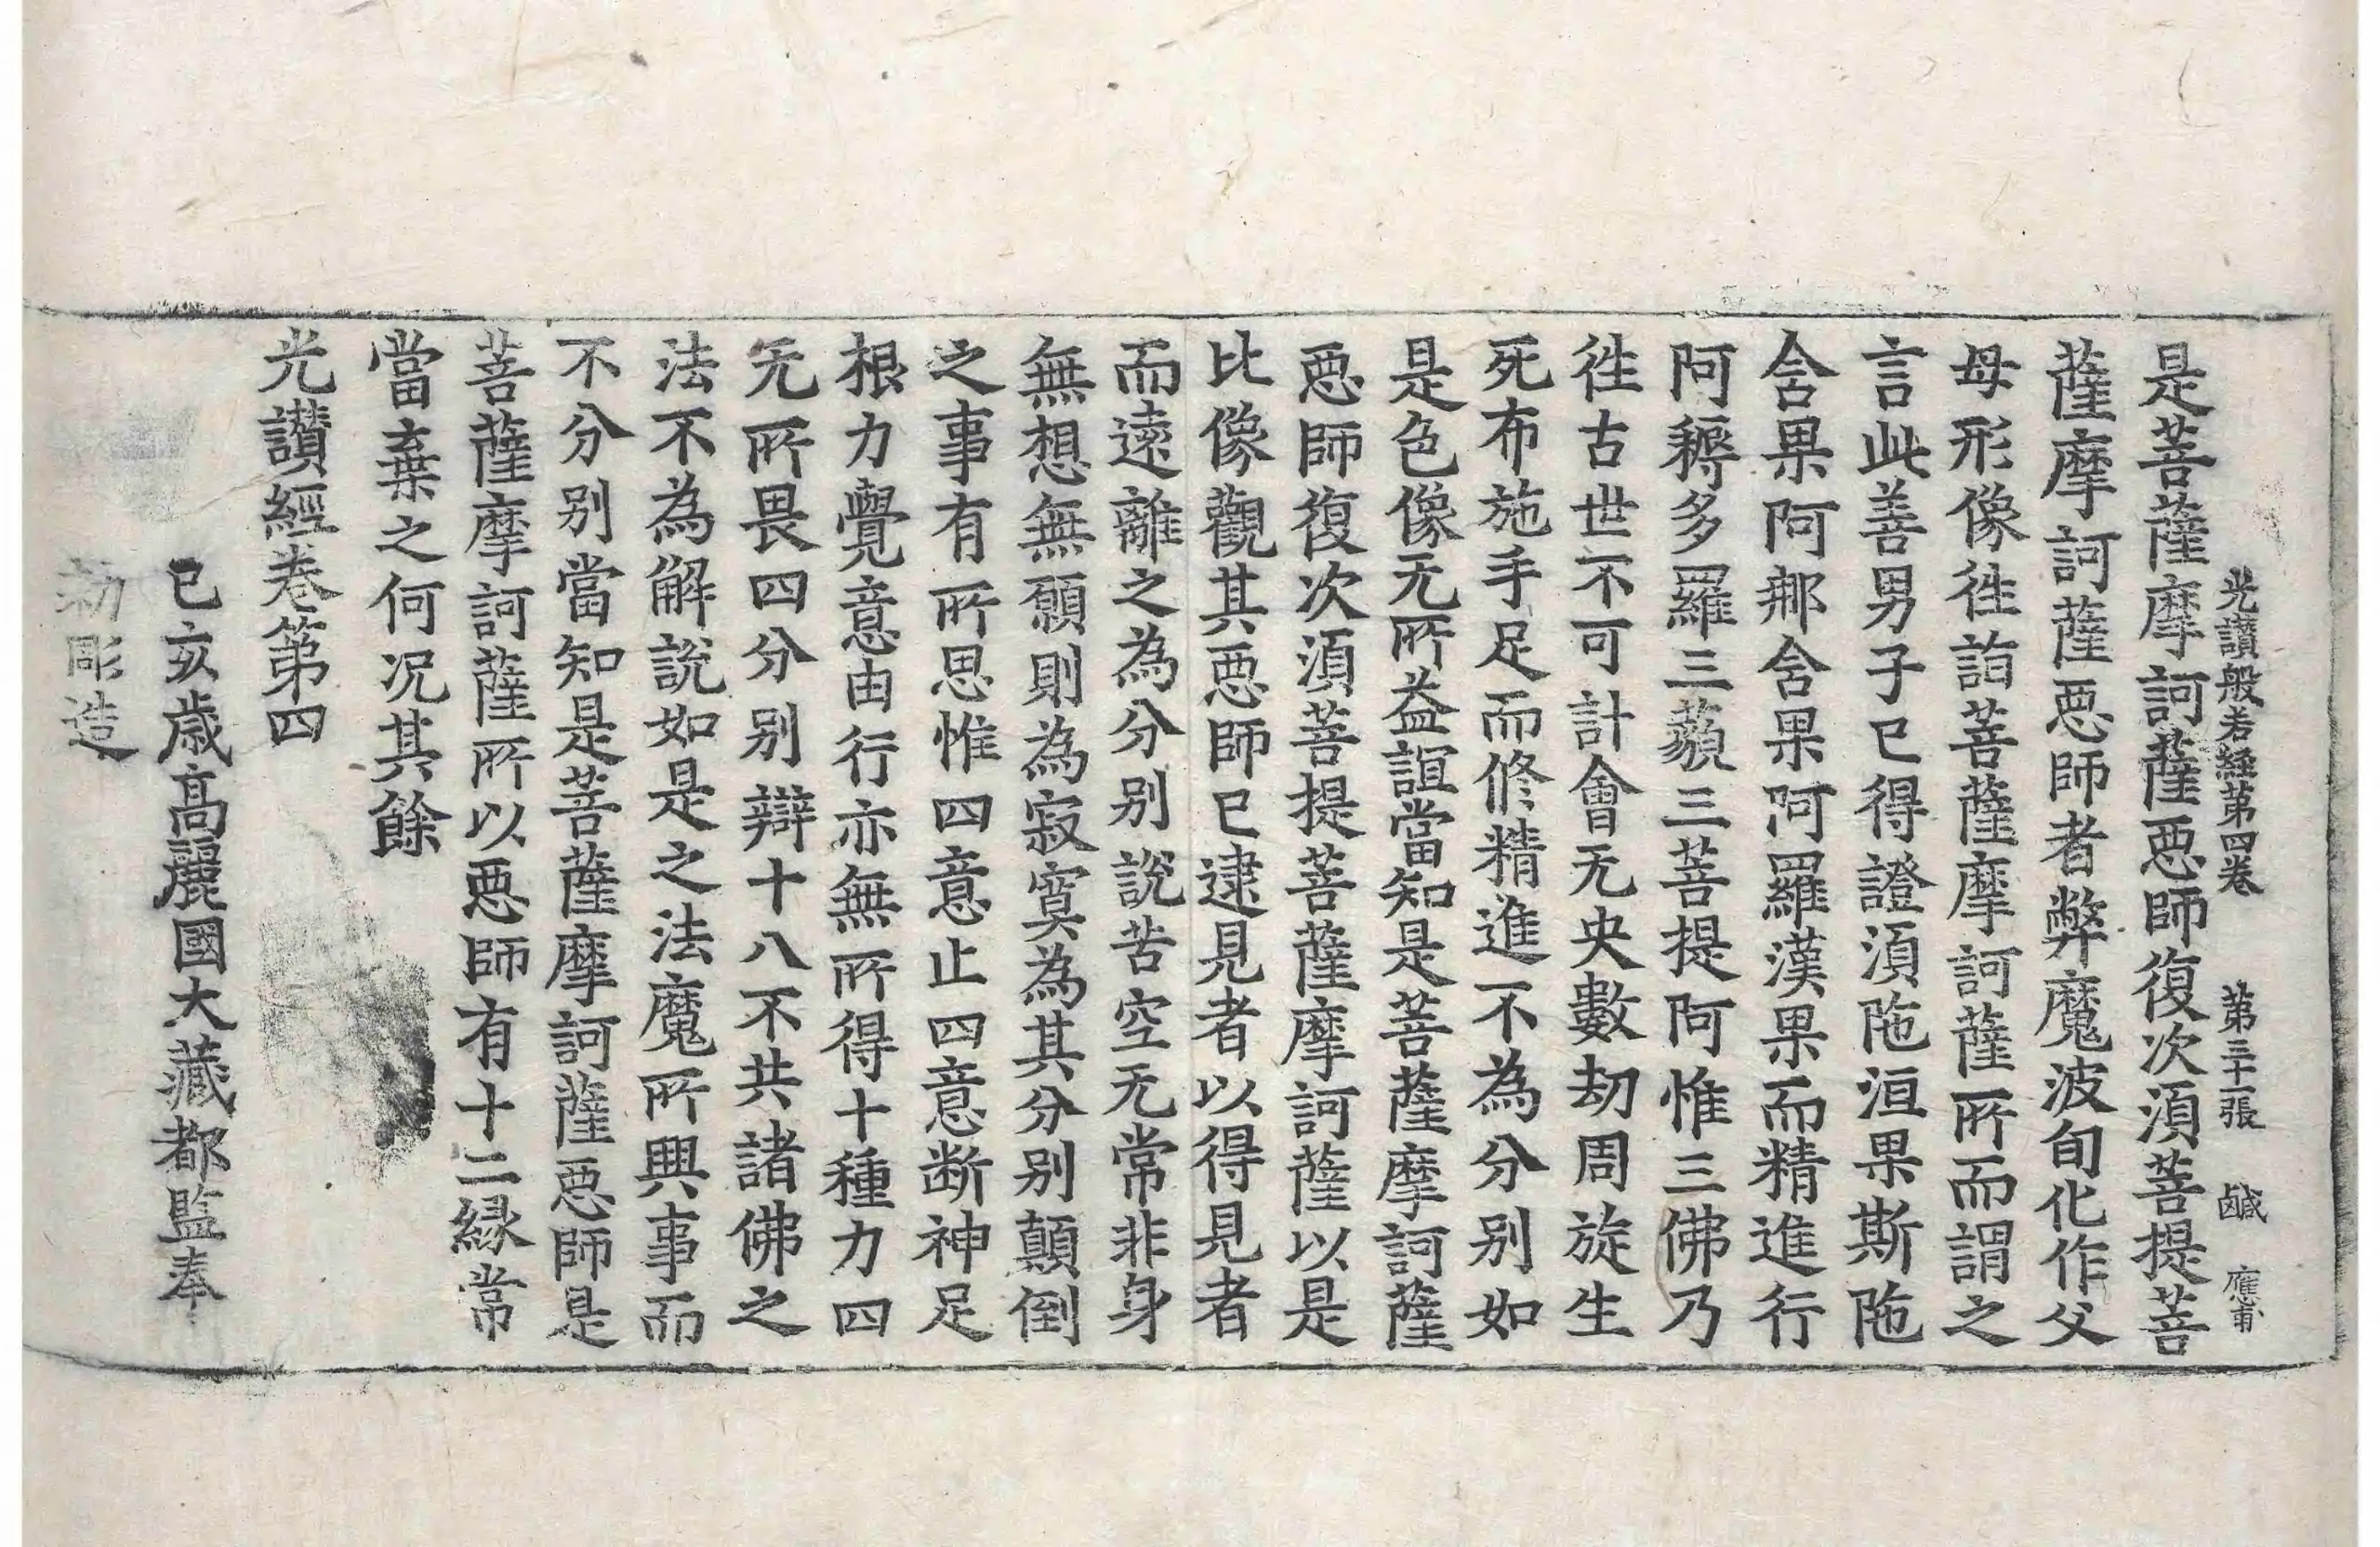 光讚般若經第四卷　第三十一張　鹹　應甫
是菩薩摩訶薩惡師復次湏菩提菩
薩摩訶薩惡師者弊魔波旬化作父
母形像徃詣菩薩摩訶薩所而謂之
言此善男子已得證湏陁洹果斯陁
含果阿那含果阿羅漢果而精進行
阿耨多羅三藐三菩提阿惟三佛乃
徃古世不可計會无央數劫周旋生
死布施手足而修精進不為分别如
是色像无所益誼當知是菩薩摩訶薩
惡師復次湏菩提菩薩摩訶薩以是
比像觀其惡師已逮見者以得見者
而遠離之為分别說苦空无常非身
無想無願則為寂寞為其分别顛倒
之事有所思惟四意止四意断神足
根力覺意由行亦無所得十種力四
无所畏四分别辯十八不共諸佛之
法不為解說如是之法魔所興事而
不分别當知是菩薩摩訶薩惡師是
菩薩摩訶薩所以惡師有十二縁常
當棄之何况其餘
光讚經卷第四
已亥歲高麗國大藏都監奉
勑彫造